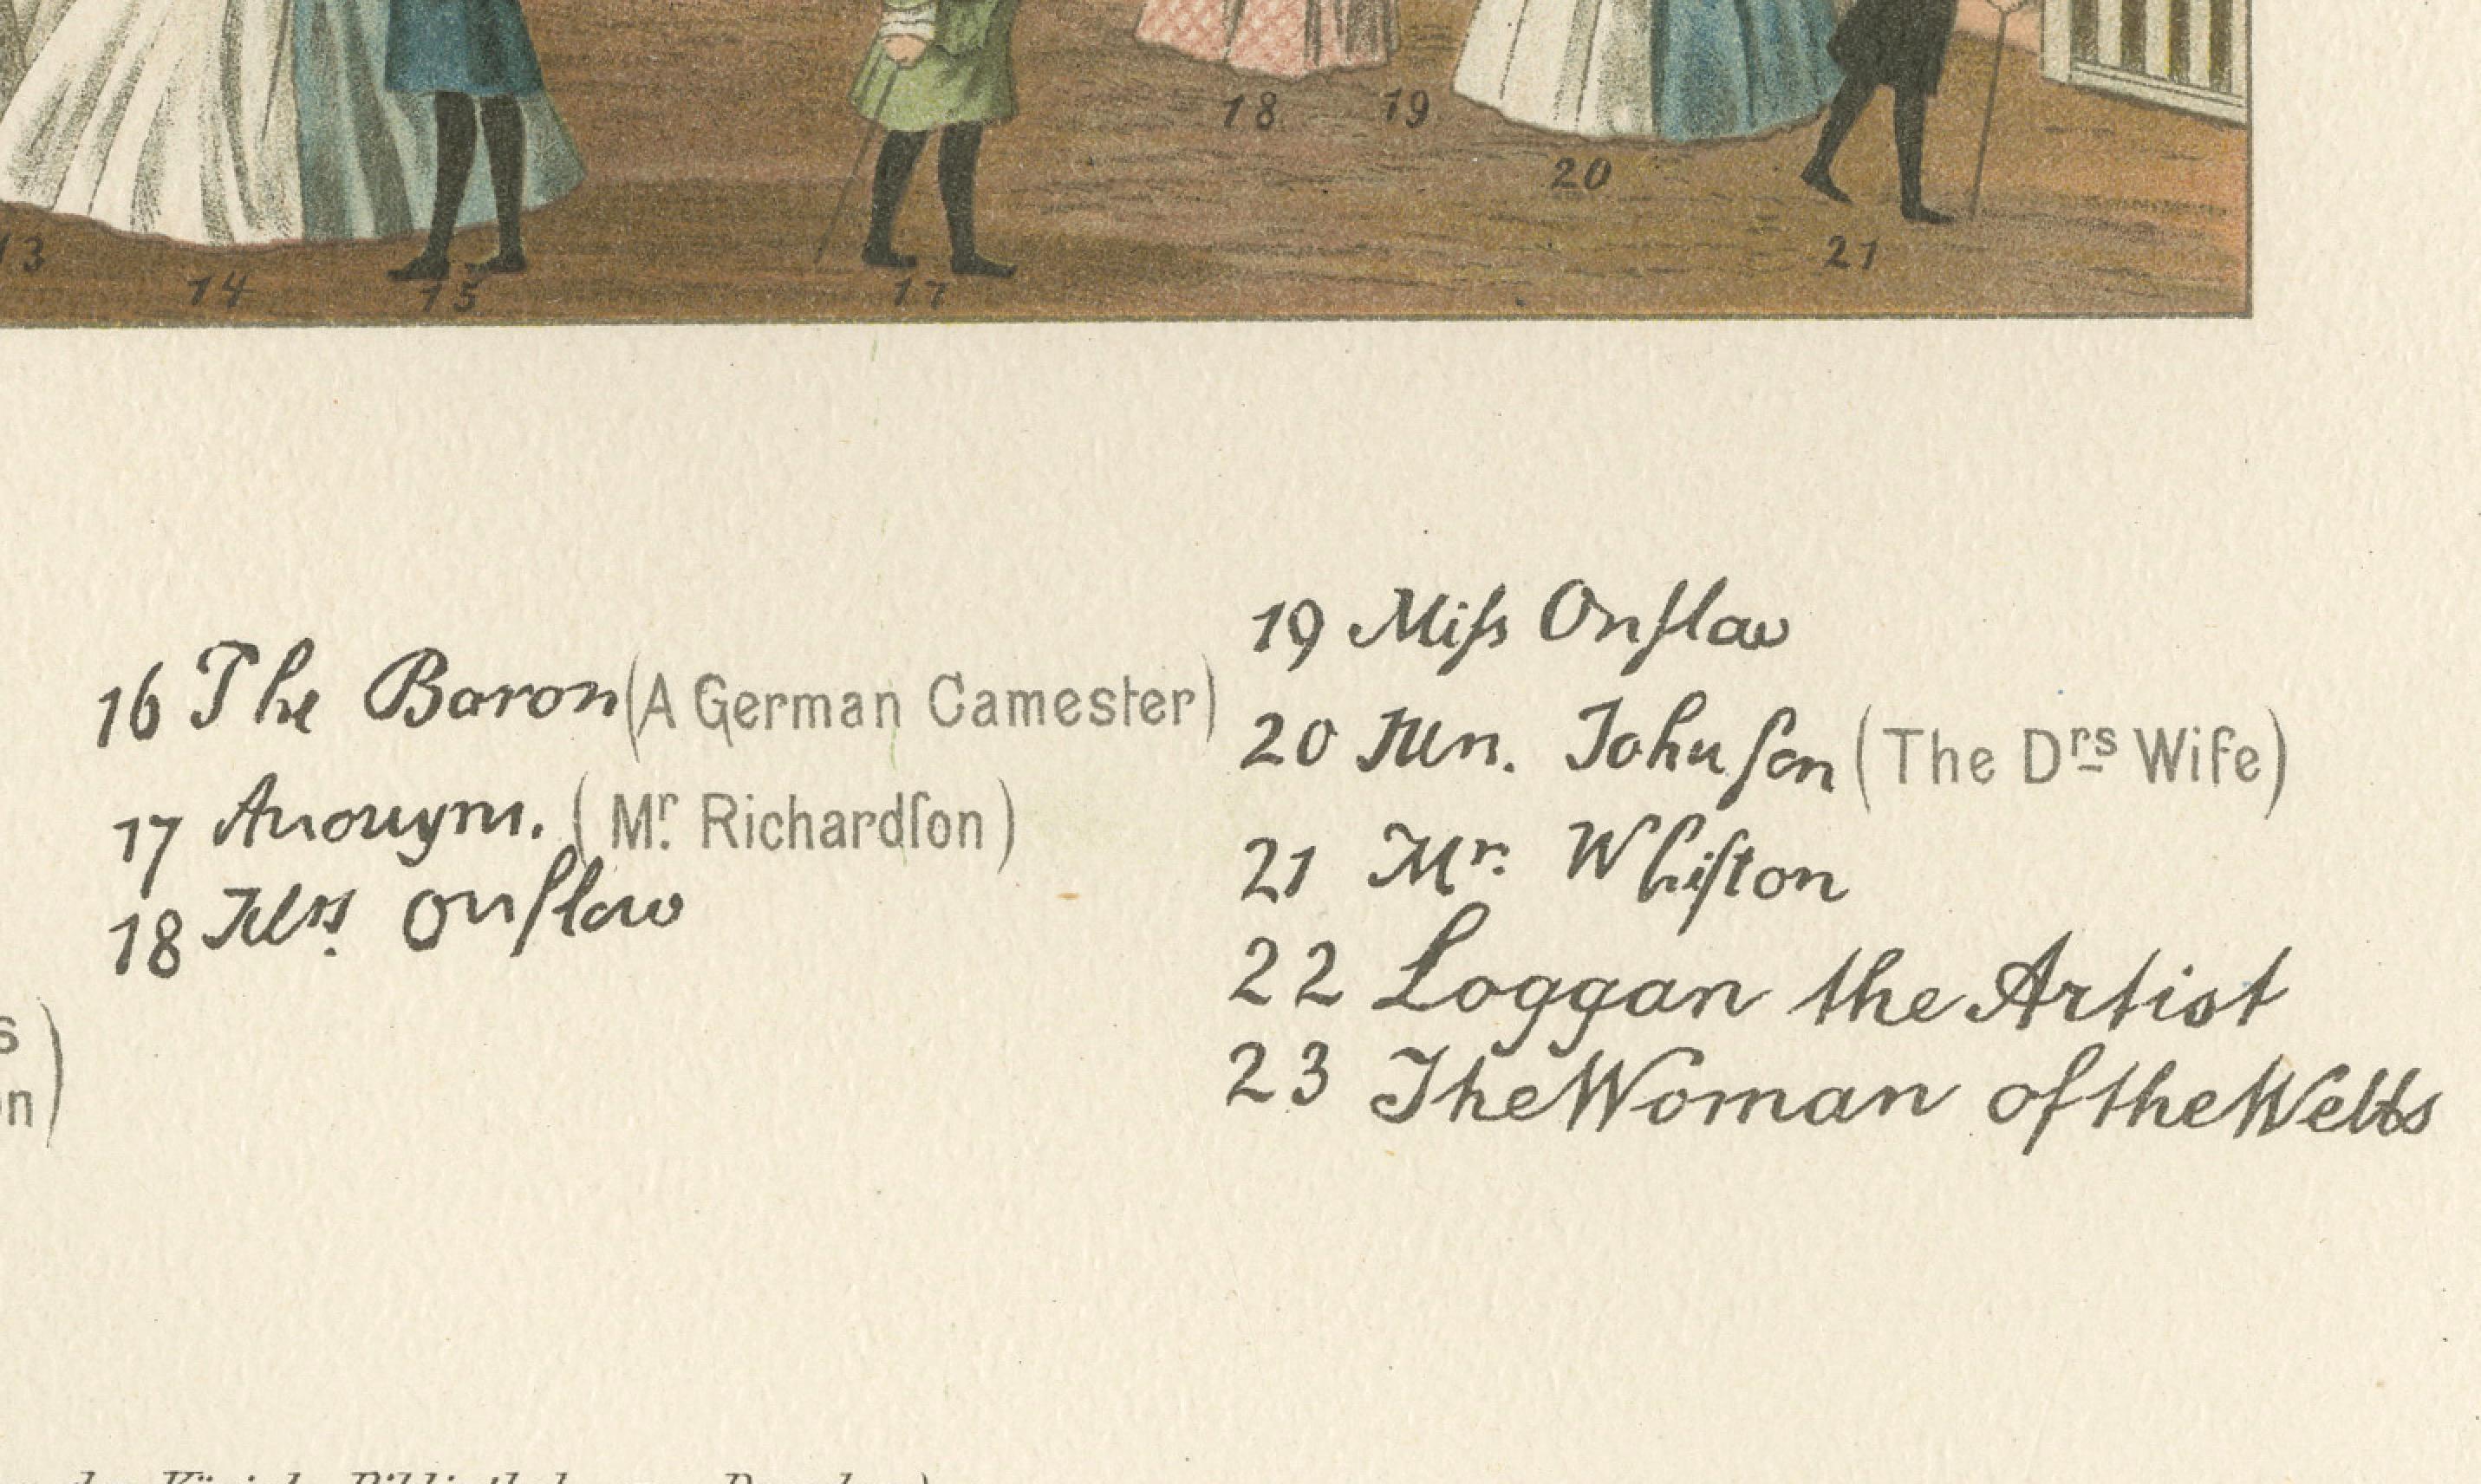 13
14
15
17
18
19
20
21
16 The Baron (A German Camester)
17 Anonym. (Mr. Richardſon)
18 Mrs. Onſlow
s
n)
19 Miſs Onſlow
20 Mrs. Johnſon (The Drs Wife)
21 Mr. Whiſton
22 Loggan the Artist
23 The Woman of the Wells